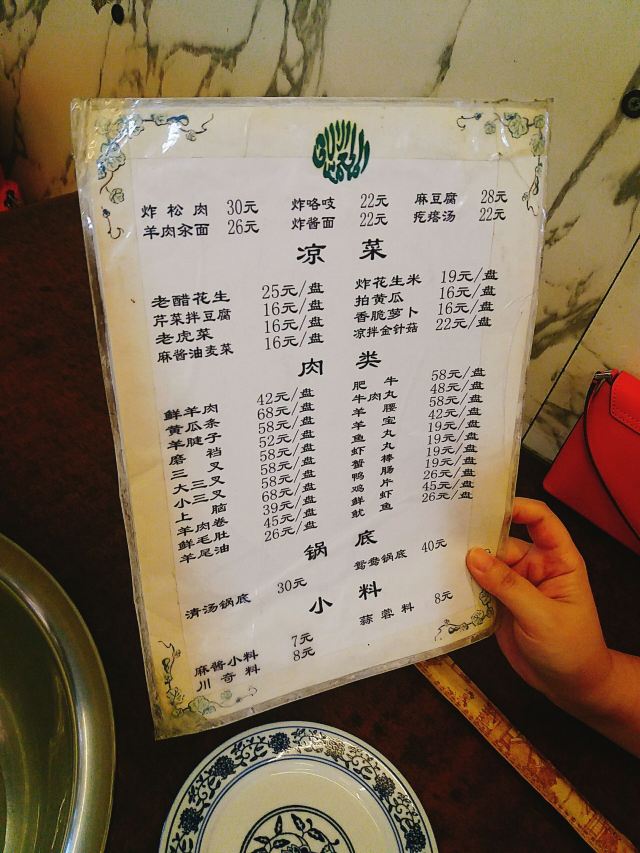 炸松肉 30元 炸咯吱 22元 麻豆腐 28元
羊肉汆面 26元 炸酱面 22元 疙瘩汤 22元
凉菜
老醋花生 25元/盘 炸花生米 19元/盘
芹菜拌豆腐 16元/盘 拍黄瓜 16元/盘
老虎菜 16元/盘 香脆萝卜 16元/盘
麻酱油麦菜 16元/盘 凉拌金针菇 22元/盘
肉类
鲜羊肉 42元/盘 肥牛 58元/盘
黄瓜条 68元/盘 牛肉丸 48元/盘
羊腱子 58元/盘 羊腰 58元/盘
磨裆 52元/盘 羊宝 42元/盘
三叉 58元/盘 鱼丸 19元/盘
大三叉 58元/盘 虾丸 19元/盘
小三叉 58元/盘 蟹棒 19元/盘
上脑 68元/盘 鸭肠 19元/盘
羊肉卷 39元/盘 鸡片 26元/盘
鲜毛肚 45元/盘 鲜虾 45元/盘
羊尾油 26元/盘 鱿鱼 26元/盘
锅底
清汤锅底 30元 鸳鸯锅底 40元
小料
麻酱小料 7元 蒜蓉料 8元
川奇料 8元